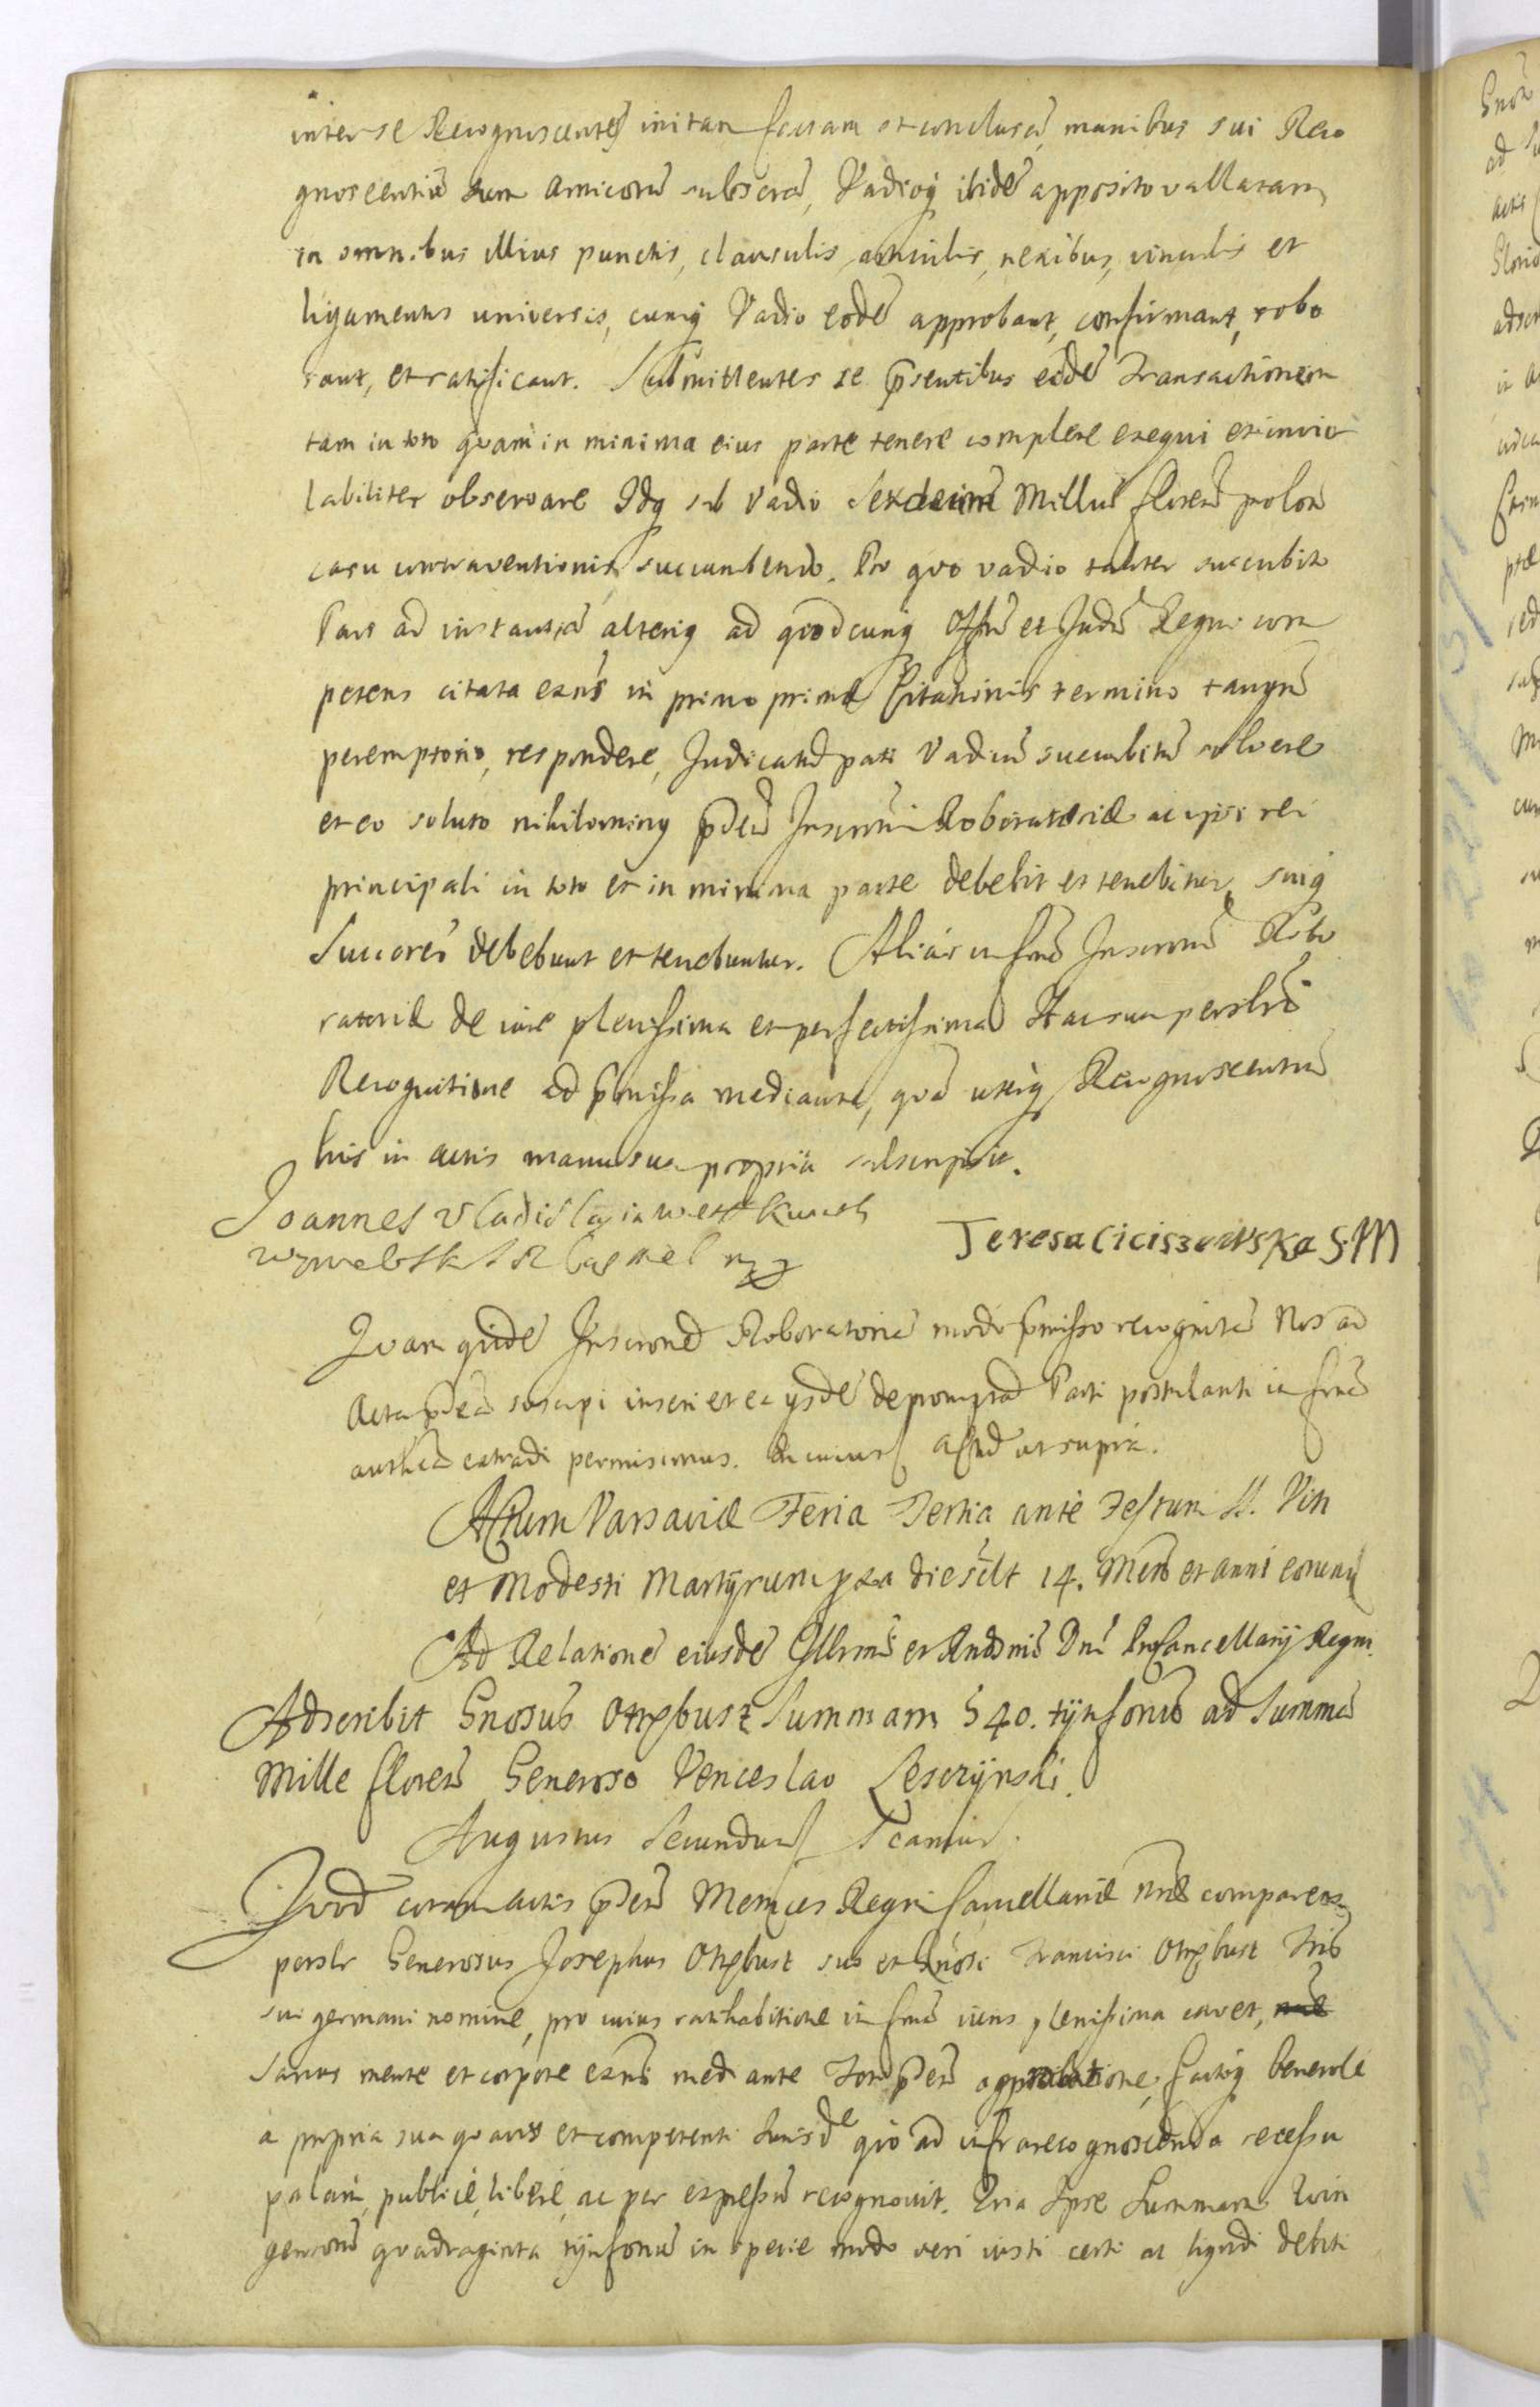 inter se Recognoscentes initam factam et conclusã, manibus sui Reco
gnoscentiũ tum Amicorũ subscrã, Vadioq ibidẽ apposito vallatam
in omnibus illius punctis, clausulis, articulis, nexibus, vinculis et
ligamentis universis, cumq Vadio eodẽ approbant, confirmant, robo
rant, et ratificant. Submittentes se p̃sentibus eidẽ Transactionem
tam in toto quam in minima eius parte tenere complere exequi et invio
labiliter observare Idq sub vadio Sexdecim Milliũ florenõ polon
casu contraventionis succumbendo. Pro quo vadio taliter succubito
Pars ad instantiã alteriq ad quodcunq Offm̃ et Judm̃ Regni com
petens citata exñs in primo primæ Citationis termino tanqm̃
peremptorio, respondere, Judicatũ pati Vadiũ succubitũ solvere
et eo soluto nihilominq p̃dctã Inscrõni Roboratoriæ ac ipsi rei
principali in toto et in minima parte debebit et tenebitur, suiq
Succõres debebunt et tenebuntur. Aliàs in frmã Inscrõnis Robo
ratoriæ de iure plenissima et perfectissima Hac sua persĩi
Recognitione ad p̃missa mediante, quã uterq Recognoscentiũ
his in actis manu sua propria subscripsit.
Joannes Vladisla
TeresaCiciszewska S M
Quam quidẽ Inscronẽ Roboratoriã modo p̃misso recognitã Nos ad
Acta p̃dctã suscipi inseri et ex ysdẽ depromptã Parti postulanti in frmã
authẽn extradi permisimus. In cuius Actũ ut supra.
Actum Varsaviæ Feria Tertia ante Festum SS. Viti
et Modesti Martyrum pxa die sclt 14. Mens et anni eorund
Ad Relationẽ eiusdẽ Illrmĩ et Rndsmĩ Dnĩ ProCancellarij Regni.
Adscribit Gnosus Otrębusz Summam 540. tynfonũ ad Summã
Mille florenõ Generoso Venceslao Leszczynski.
Augustus Secundus
Quod coram actis p̃dctis Metrices Regni Cancellariæ mãe comparens
persłr Generosus Josephus Otrębusz suo et Gnosi Francisci Otrębusz fris
sui germani nomine, pro cuius ratihabitione in frmã iuris plenissima cavet,
Sanus mente et corpore exñs mediante fori p̃dctĩ approbatione, factoq benevolè
a propria sua quavis et competenti Jurisde quo ad infrarecognoscenda recessu
palàm, publicè, liberè, ac per expressũ recognovit. Quia Ipse Summam Quin
gentorũ quadraginta tynfonũ in specie modo veri iusti certi ac liquidi debiti